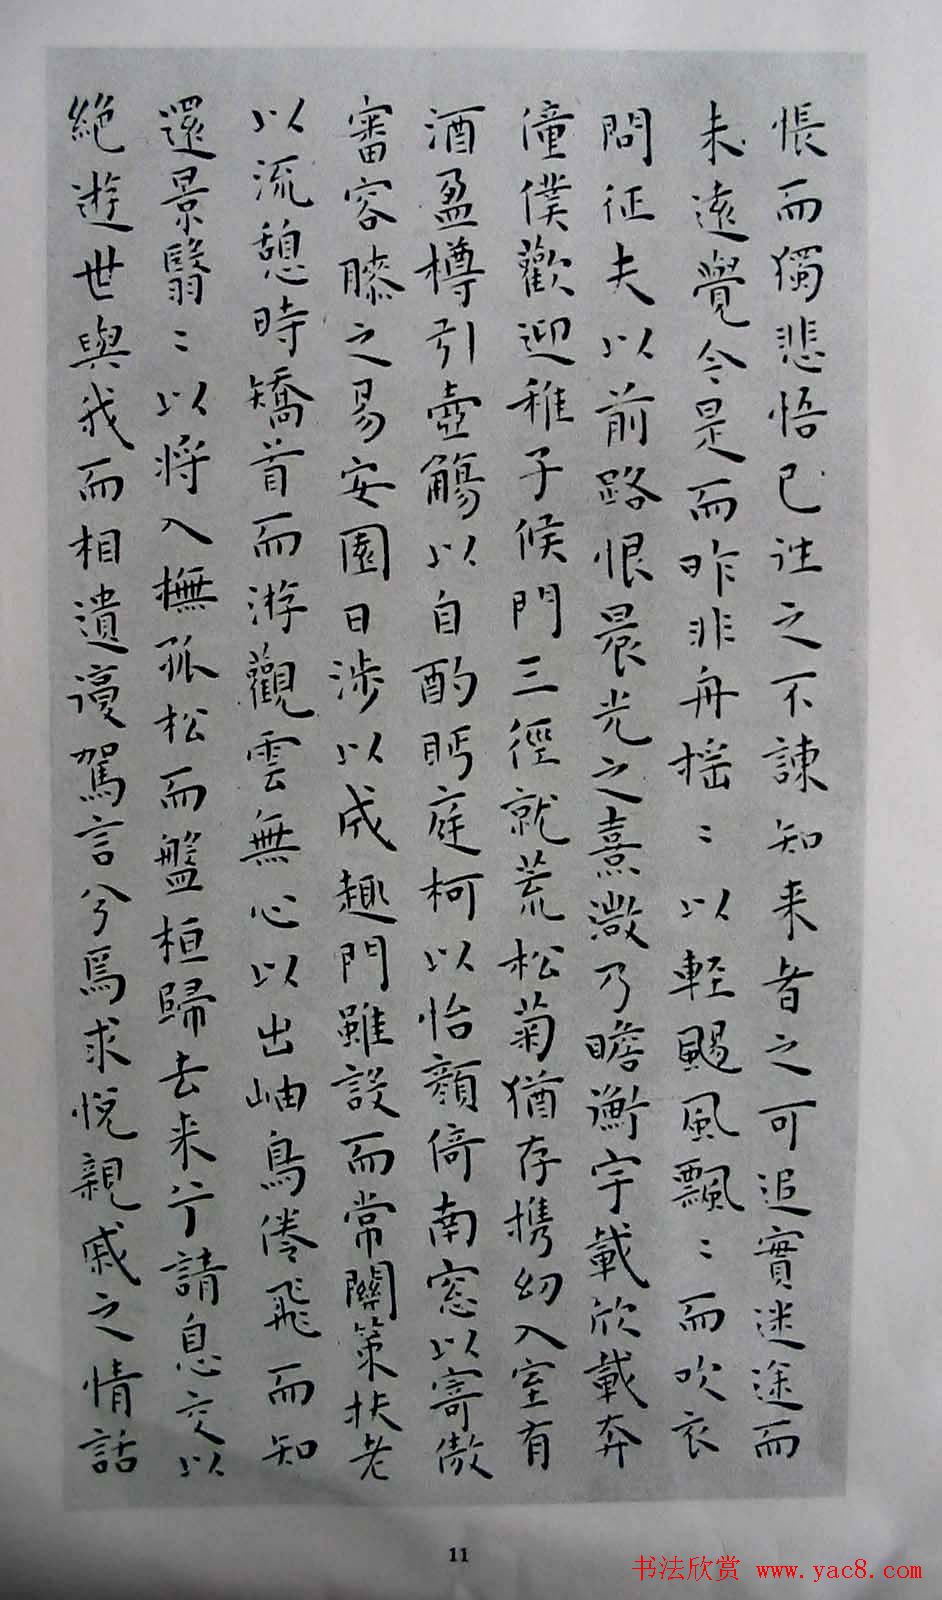 悵而獨悲悟已往之不諫知来者之可追實迷途而
未遠覺今是而昨非舟揺〻以輕颺風飄〻而吹衣
問征夫以前路恨晨光之熹微乃瞻衡宇載欣載奔
僮僕歡迎稚子候門三徑就荒松菊猶存携幼入室有
酒盈樽引壺觴以自酌眄庭柯以怡顏倚南窓以寄傲
審容膝之易安園日涉以成趣門雖設而常關策扶老
以流憩時矯首而游觀雲無心以出岫鳥倦飛而知
還景翳〻以将入撫孤松而盤桓歸去来兮請息交以
絶遊世與我而相遺復駕言兮焉求悅親戚之情話
11
书法欣赏 www.yac8.com